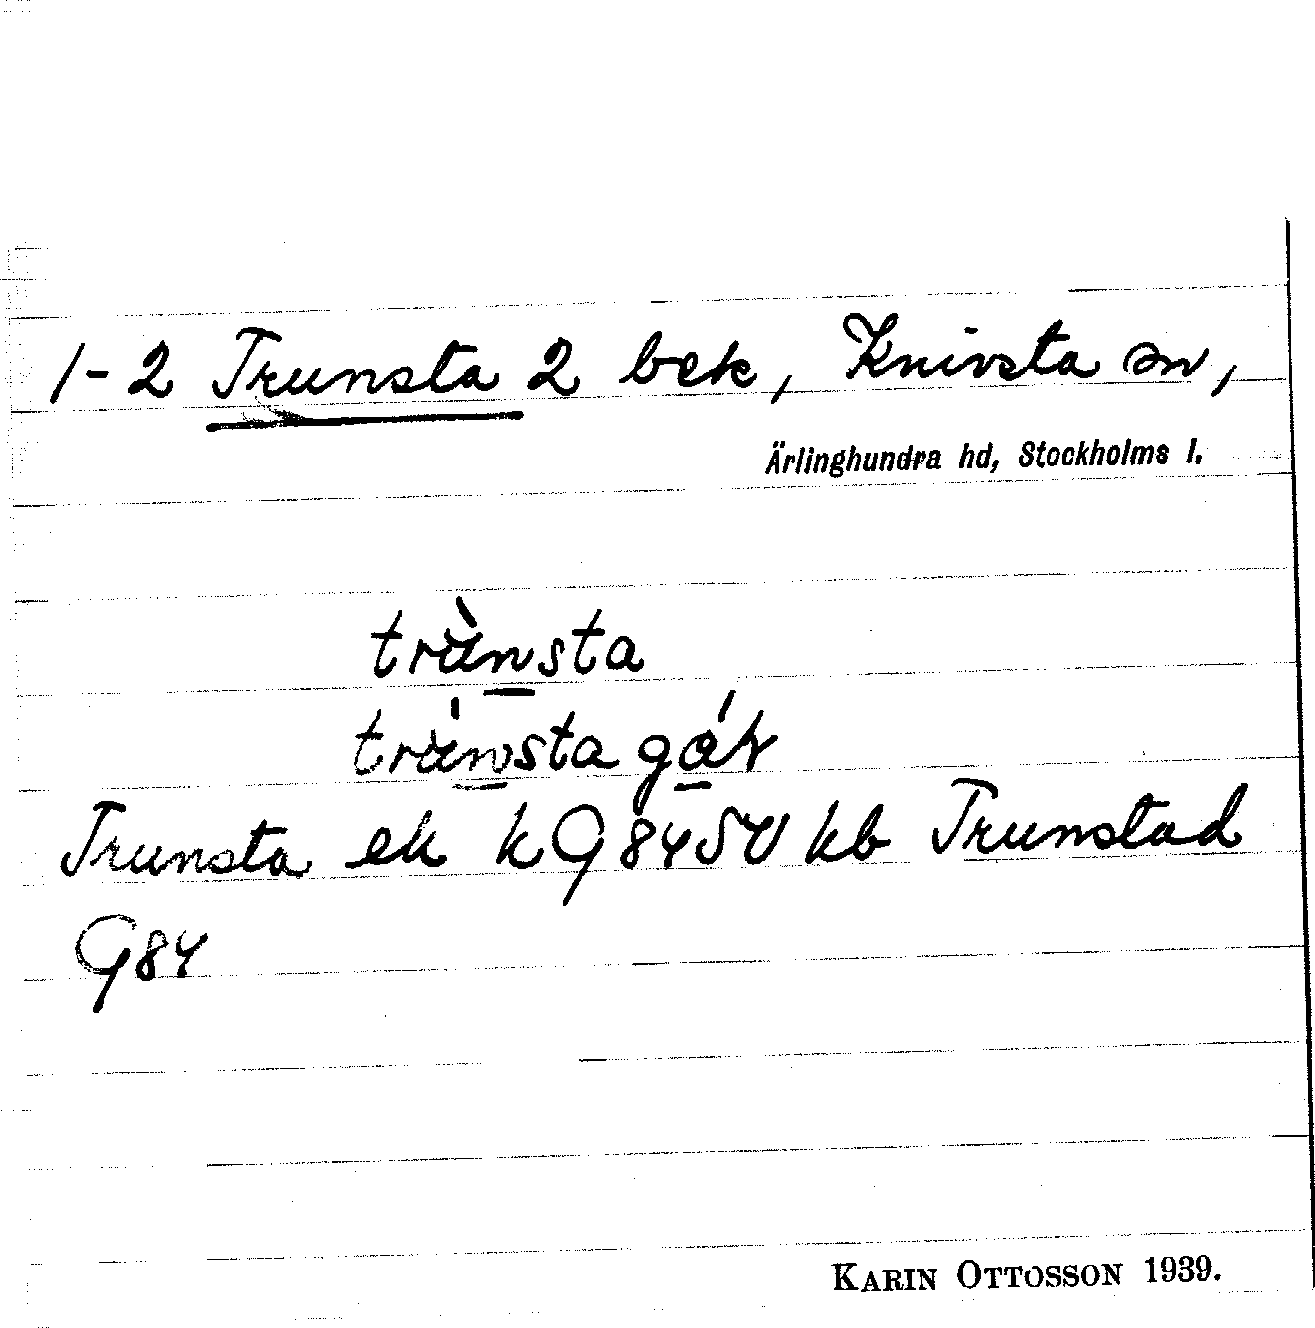 1-2 Trunsta 2 bek, Knivsta sn,
Ärlinghundra hd, Stockholms l.
trùnsta
trùnsta gáṭ
Trunsta ek k G 84 SV kb Trunstad
G 84
KARIN OTTOSSON 1939.